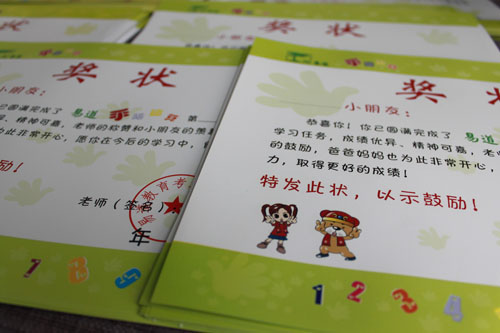 奖 状
奖 状
小朋友：
已圆满完成了 易道
精神可嘉，老师的称赞和小朋友的羡
此非常开心，愿你在今后的学习中，
励！
老师（签名）
年
1 B
奖 状
小朋友：
恭喜你！你已圆满完成了 易道
学习任务，成绩优异、精神可嘉，老
的鼓励，爸爸妈妈也为此非常开心，
力，取得更好的成绩！
特发此状，以示鼓励！
1 2 3 4